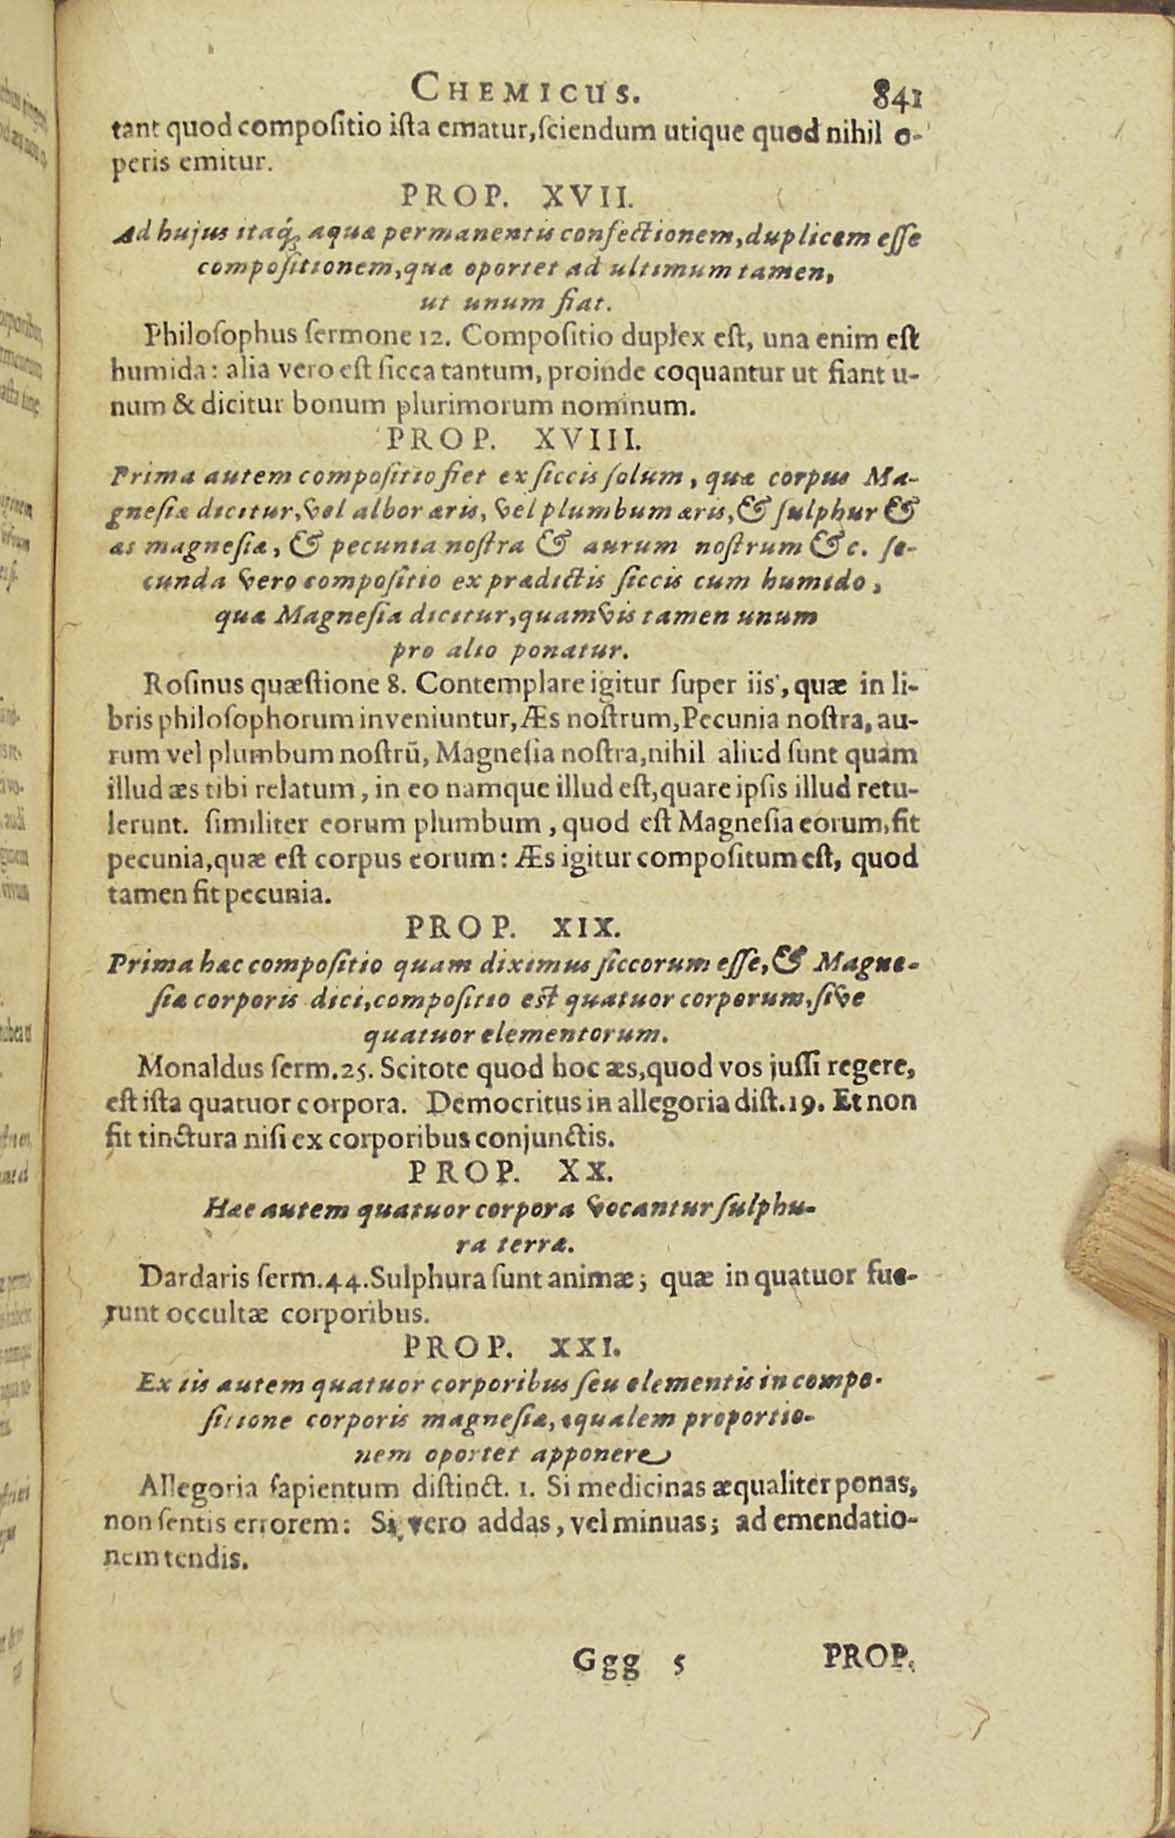 CHEMICUS. 841
tant quod compoſitio iſta ematur, ſciendum utique quod nihil o-
peris emitur.
PROP. XVII.
Ad hujus itaq́; aquæ permanentis confectionem, duplicem eſſe
compoſitionem, quæ oportet ad ultimum tamen,
ut unum fiat.
Philoſophus ſermone 12. Compoſitio duplex eſt, una enim eſt
humida: alia vero eſt ſicca tantum, proinde coquantur ut fiant u-
num & dicitur bonum plurimorum nominum.
PROP. XVIII.
Prima autem compoſitio fiet ex ſiccis ſolum, quæ corpus Ma-
gneſiæ dicitur, vel albor æris, vel plumbum æris, & ſulphur &
æs magneſiæ, & pecunia noſtra & aurum noſtrum &c. ſe-
cunda vero compoſitio ex prædictis ſiccis cum humido,
quæ Magneſia dicitur, quamvis tamen unum
pro alio ponatur.
Roſinus quæſtione 8. Contemplare igitur ſuper iis, quæ in li-
bris philoſophorum inveniuntur, Æs noſtrum, Pecunia noſtra, au-
rum vel plumbum noſtrū, Magneſia noſtra, nihil aliud ſunt quàm
illud æs tibi relatum, in eo namque illud eſt, quare ipſis illud retu-
lerunt. ſimiliter eorum plumbum, quod eſt Magneſia eorum, fit
pecunia, quæ eſt corpus eorum: Æs igitur compoſitum eſt, quod
tamen fit pecunia.
PROP. XIX.
Prima hæc compoſitio quam diximus ſiccorum eſſe, & Magne-
ſiæ corporis dici, compoſitio eſt quatuor corporum, ſive
quatuor elementorum.
Monaldus ſerm. 25. Scitote quod hoc æs, quod vos juſſi regere,
eſt iſta quatuor corpora. Democritus in allegoria diſt. 19. Et non
fit tinctura niſi ex corporibus conjunctis.
PROP. XX.
Hæc autem quatuor corpora vocantur ſulphu-
ra terræ.
Dardaris ſerm. 44. Sulphura ſunt animæ; quæ in quatuor fue-
runt occultæ corporibus.
PROP. XXI.
Ex iis autem quatuor corporibus ſeu elementis in compo-
ſitione corporis magneſiæ, æqualem proportio-
nem oportet apponere
Allegoria ſapientum diſtinct. 1. Si medicinas æqualiter ponas,
non ſentis errorem: Si vero addas, vel minuas; ad emendatio-
nem tendis.
Ggg 5 PROP.